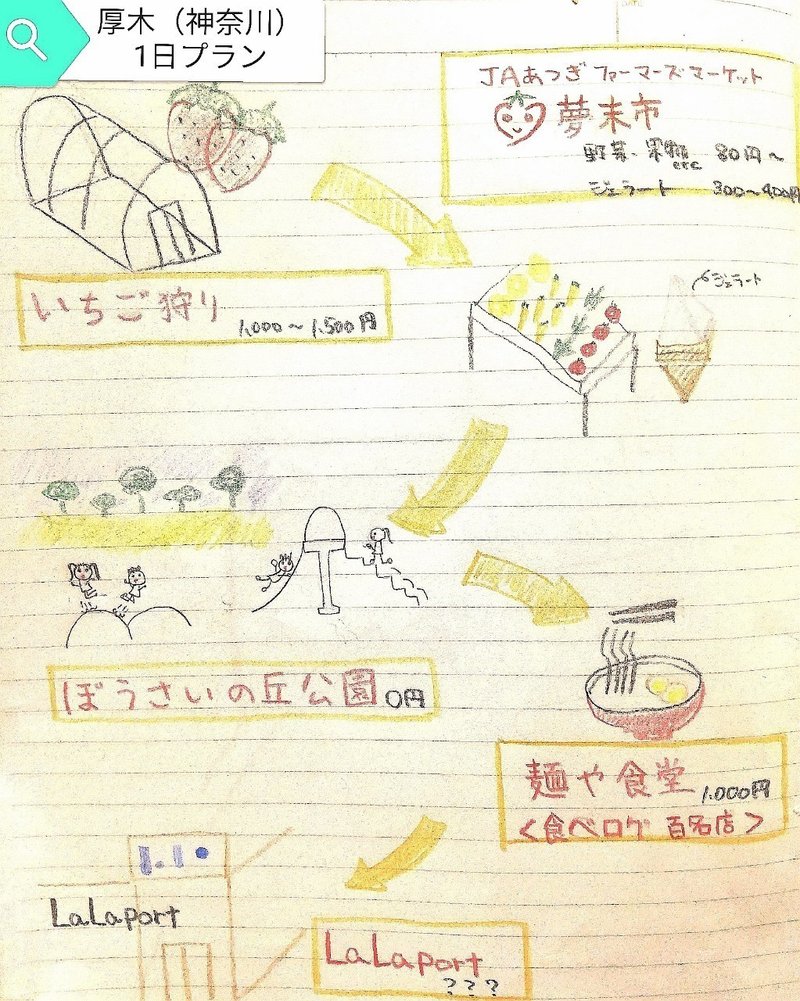 厚木（神奈川）
1日プラン
JAあつぎファーマーズマーケット
夢未市
野菜・果物etc 80円〜
ジェラート 300〜400円
いちご狩り
1,000〜1,500円
ジェラート
ぼうさいの丘公園 0円
麺や食堂 1,000円
<食べログ 百名店>
LaLaport
LaLaport
???